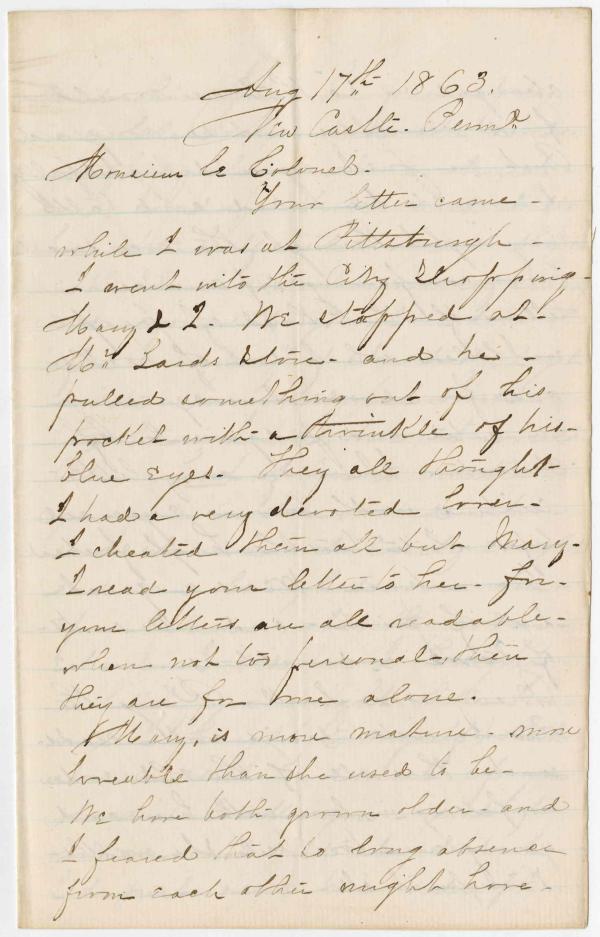 Aug 17th 1863.
New Castle. Penna
Monsieur le Colonel.
Your letter came -
while I was at Pittsburgh -
I went into the City shopping -
Mary & I. We stopped at -
Mr Lairds store - and he -
pulled something out of his
pocket with a twinkle of his -
blue eyes. They all thought
I had a very devoted lover -
I cheated them all but Mary -
I read your letter to her - for -
your letters are all readable -
when not too personal, then
they are for me alone.
Mary, is more mature - more
loveable than she used to be -
We have both grown older - and
I feared that so long absence
from each other might have -